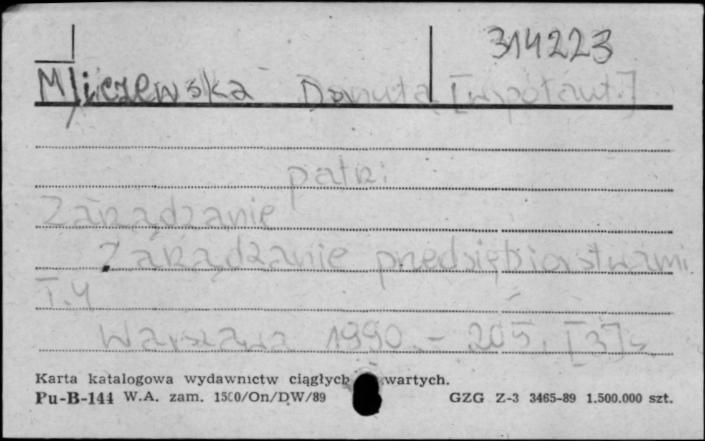 314223
Danuta [współaut.]
patrz:
Zarządzanie
Zarządzanie przedsiębiorstwami.
T.4
Warszawa 1990. - 205, [3] s
Karta katalogowa wydawnictw ciągłych wartych.
Pu-B-144 W.A. zam. 1500/On/DW/89 GZG Z-3 3465-89 1.500.000 szt.